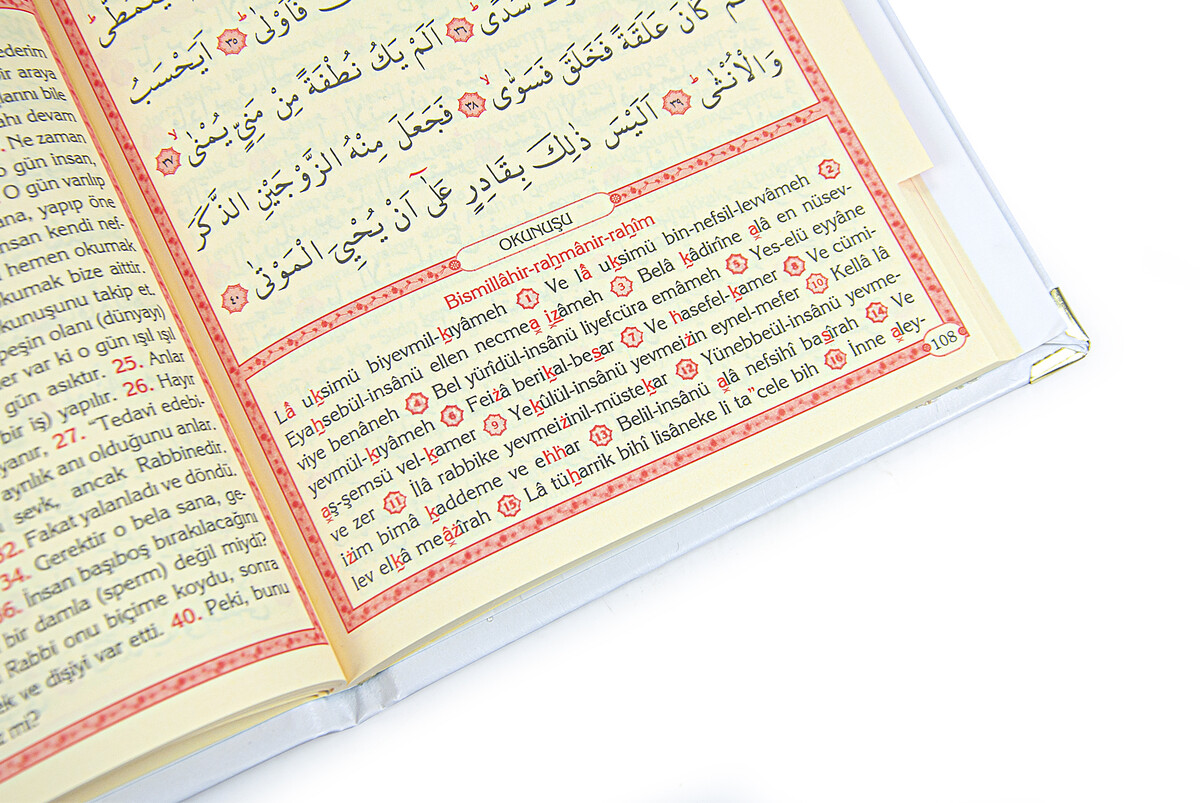 ederim
bir araya
larını bile
ahı devam
. Ne zaman
o gün insan,
O gün varılıp
ana, yapıp öne
nsan kendi nef-
hemen okumak
kumak bize aittir.
kunuşunu takip et.
peşin olanı (dünyayı)
er var ki o gün ışıl ışıl
gün asıktır. 25. Anlar
bir iş) yapılır. 26. Hayır
yanır, 27. “Tedavi edebi-
ayrılık anı olduğunu anlar.
sevk, ancak Rabbinedir.
32. Fakat yalanladı ve döndü.
34. Gerektir o bela sana, ge-
36. İnsan başıboş bırakılacağını
bir damla (sperm) değil miydi?
Rabbi onu biçime koydu, sonra
ek ve dişiyi var etti. 40. Peki, bunu
z mi?
يَتَمَطّٰى
فَاَوْلٰى ٣٥ اَيَحْسَبُ
سُدًى ٣٦ اَلَمْ يَكُ نُطْفَةً مِنْ مَنِيٍّ يُمْنٰى ٣٧
كَانَ عَلَقَةً فَخَلَقَ فَسَوّٰى ٣٨ فَجَعَلَ مِنْهُ الزَّوْجَيْنِ الذَّكَرَ
وَالْاُنْثٰى ٣٩ اَلَيْسَ ذٰلِكَ بِقَادِرٍ عَلٰٓى اَنْ يُحْيِيَ الْمَوْتٰى ٤٠
OKUNUŞU
Bismillâhir-rahmânir-rahîm
Lâ uksimü biyevmil-kıyâmeh 1 Ve lâ uksimü bin-nefsil-levvâmeh 2
Eyahsebül-insânü ellen necmea izâmeh 3 Belâ kâdirîne alâ en nüsev-
viye benâneh 4 Bel yürîdül-insânü liyefcüra emâmeh 5 Yes-elü eyyâne
yevmül-kıyâmeh 6 Feiżâ berikal-besar 7 Ve hasefel-kamer 8 Ve cümi-
aş-şemsü vel-kamer 9 Yekûlül-insânü yevmeiżin eynel-mefer 10 Kellâ lâ
ve zer 11 İlâ rabbike yevmeiżinil-müstekar 12 Yünebbeül-insânü yevme-
iżim bimâ kaddeme ve ehhar 13 Belil-insânü alâ nefsihî basîrah 14 Ve
lev elkâ meâżîrah 15 Lâ tüharrik bihî lisâneke li ta”cele bih 16 İnne aley-
108